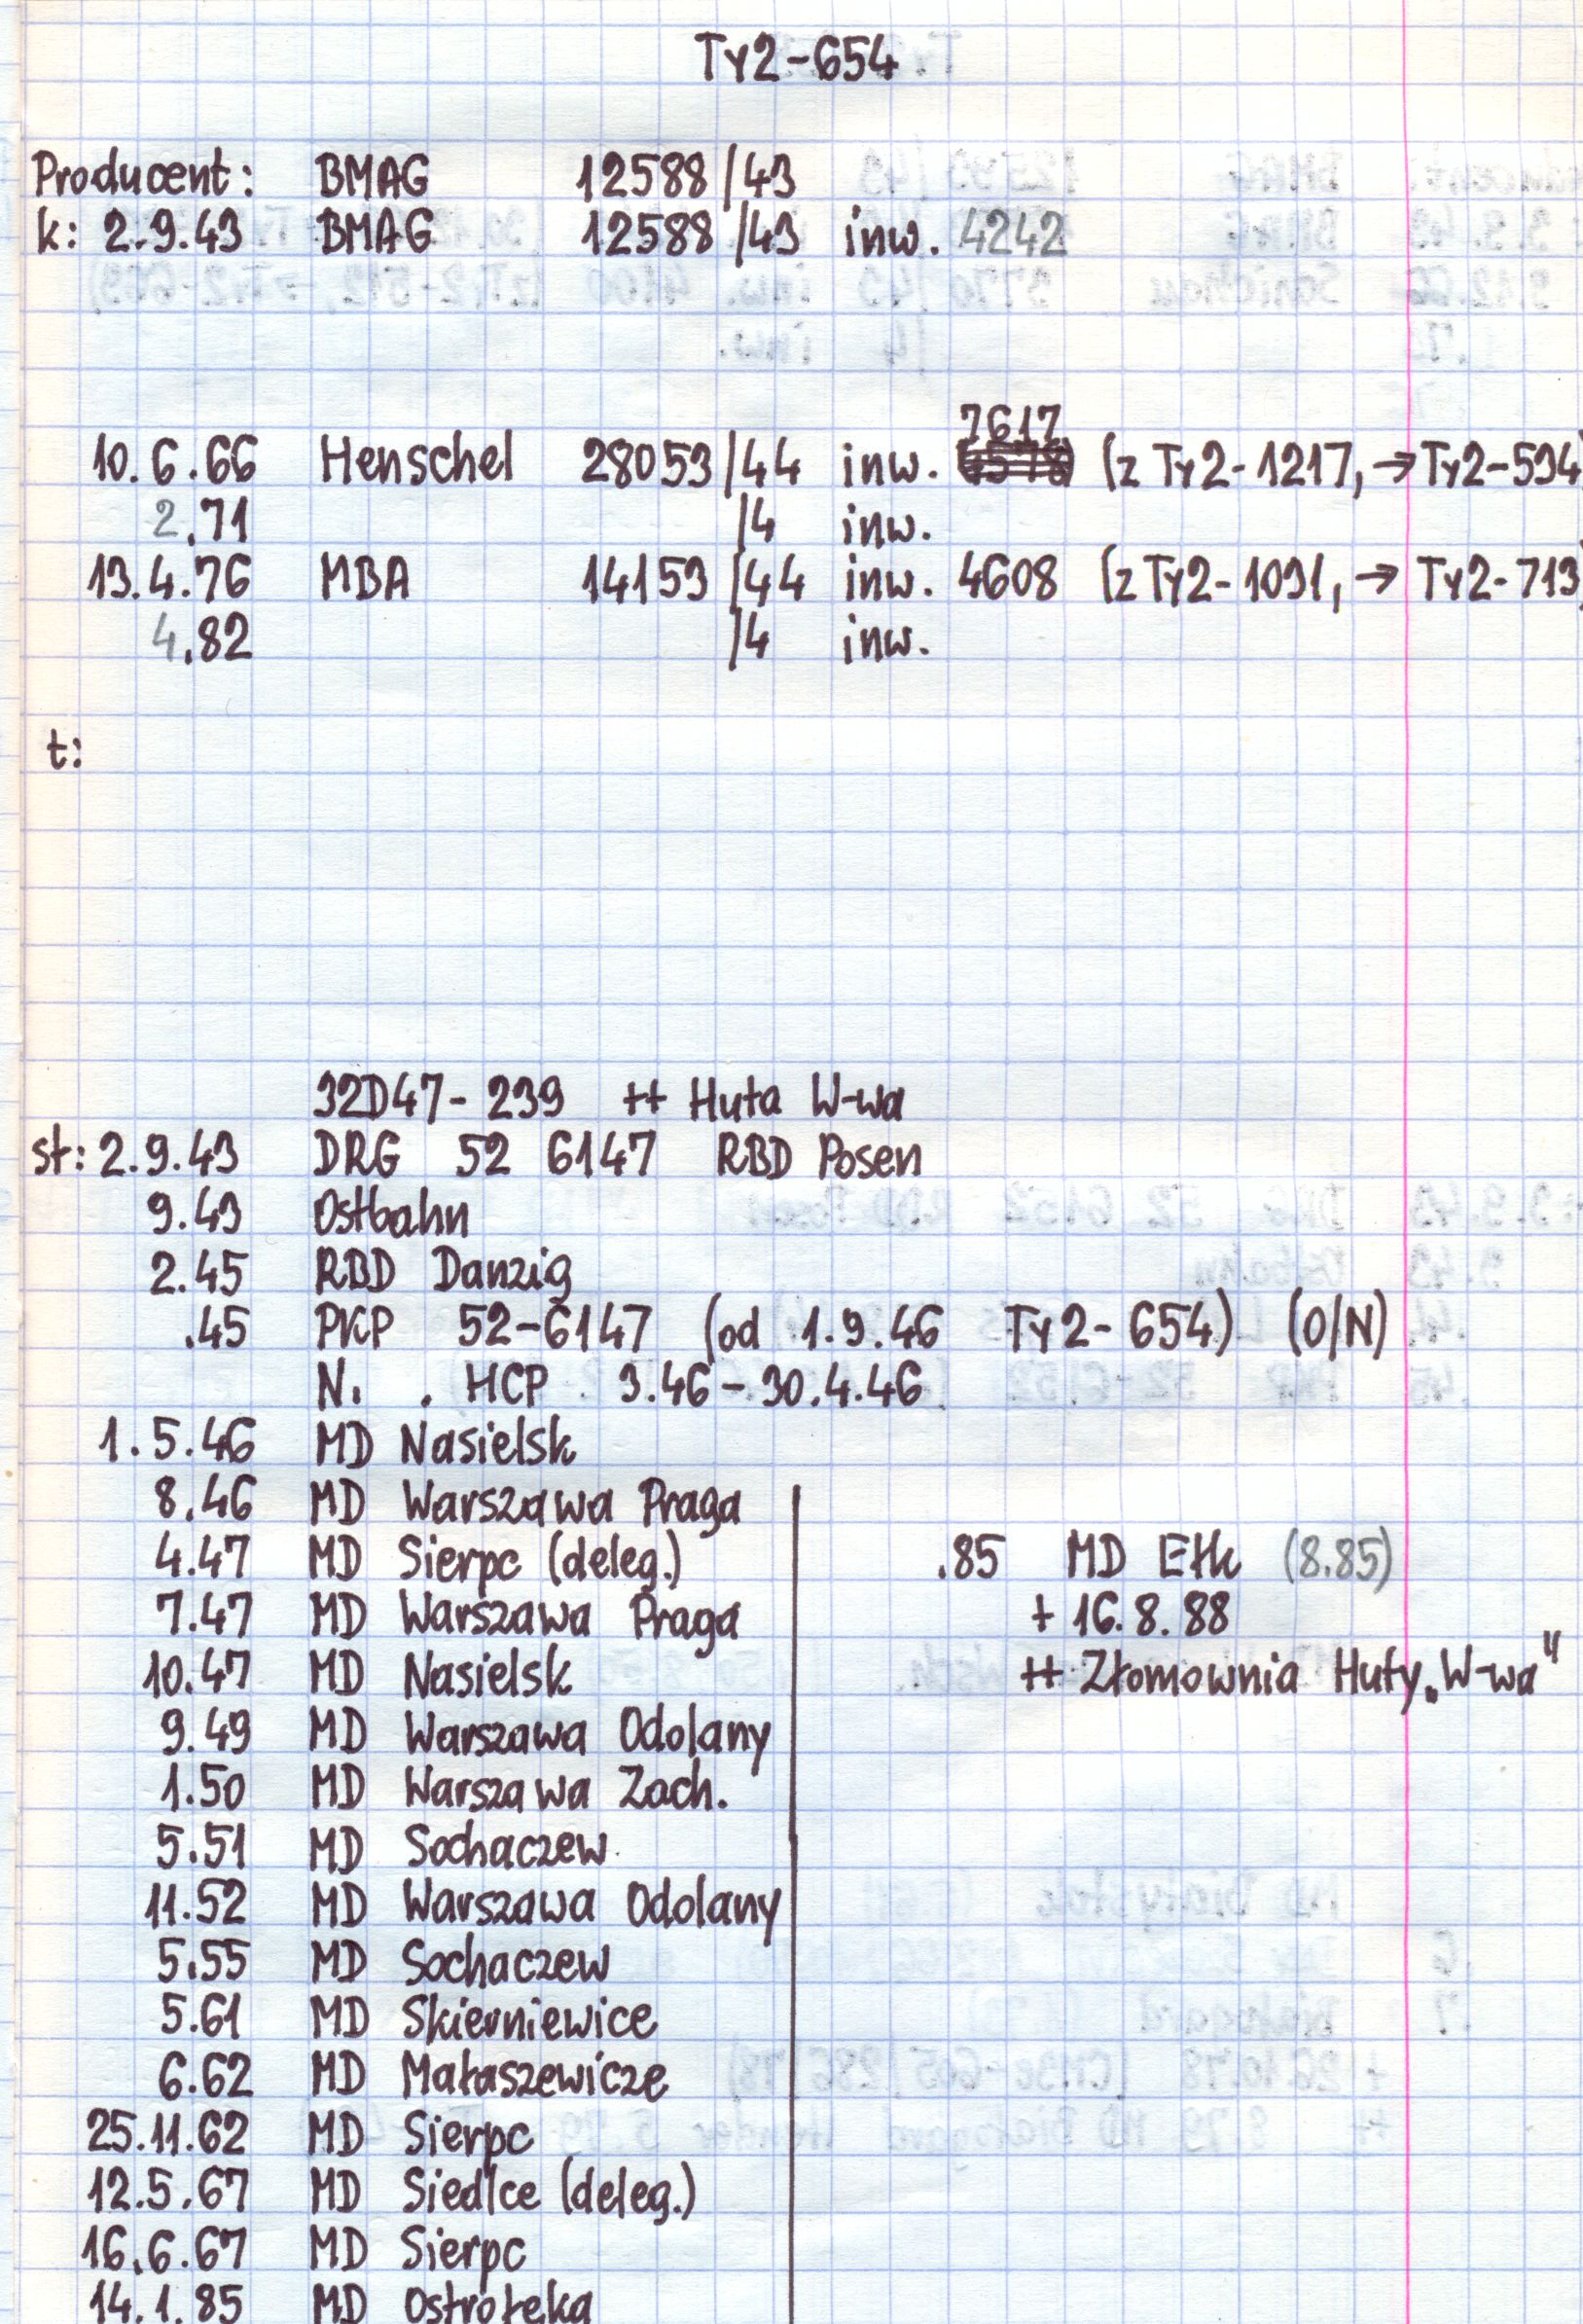 Ty2-654
Producent: BMAG 12588/43
k: 2.9.43 BMAG 12588/43 inw. 4242
7617
10.6.66 Henschel 28053/44 inw. (z Ty2-1217, → Ty2-594)
2.71 /4 inw.
13.4.76 MBA 14153/44 inw. 4608 (z Ty2-1091, → Ty2-713)
4.82 /4 inw.
t:
32D47-239 ++ Huta W-wa
st: 2.9.43 DRG 52 6147 RBD Posen
9.43 Ostbahn
2.45 RBD Danzig
.45 PKP 52-6147 (od 1.9.46 Ty2-654) (O/N)
N. . HCP 3.46-30.4.46
1.5.46 MD Nasielsk
8.46 MD Warszawa Praga
4.47 MD Sierpc (deleg.)
7.47 MD Warszawa Praga
10.47 MD Nasielsk
9.49 MD Warszawa Odolany
1.50 MD Warszawa Zach.
5.51 MD Sochaczew
11.52 MD Warszawa Odolany
5.55 MD Sochaczew
5.61 MD Skierniewice
6.62 MD Małaszewicze
25.11.62 MD Sierpc
12.5.67 MD Siedlce (deleg.)
16.6.67 MD Sierpc
14.1.85 MD Ostrołęka
.85 MD Ełk (8.85)
+ 16.8.88
++ Złomownia Huty „W-wa"